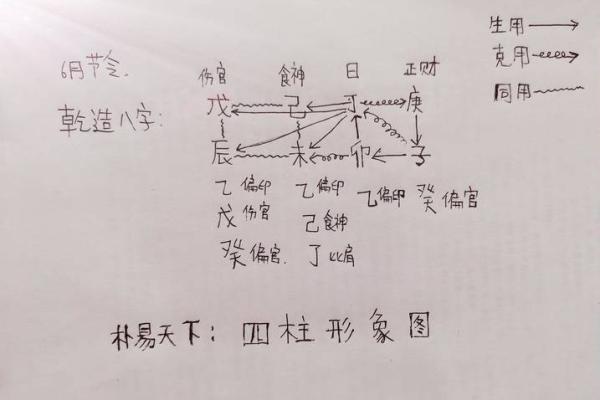 生用
克用
同用
6月节令.
伤官 食神 日 正财
乾造八字: 戊 己 丁 庚
辰 未 卯 子
乙偏印 乙偏印 乙偏印 癸偏官
戊伤官 己食神
癸偏官. 丁比肩
朴易天下: 四柱形象图